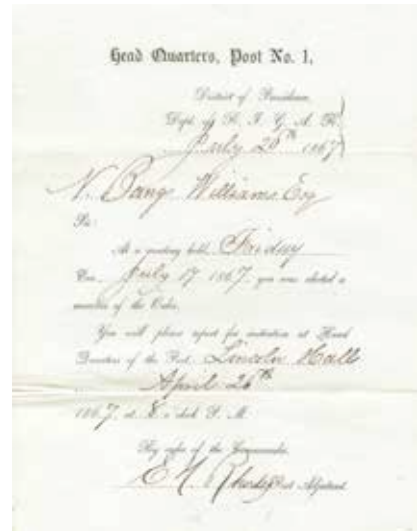 Head Quarters, Post No. 1,
District of Providence,
Dept. of R. I. G. A. R.
July 26th 1867
N. Bang Williams Esq
Sir:
At a meeting held Friday
Eve. July 17 1867. you were elected a
member of the Order.
You will please report for initiation at Head
Quarters of the Post. Lincoln Halls
April 26th
1867, at 8 o'clock P. M.
By order of the Commander.
E H. Rhodes Post Adjutant.